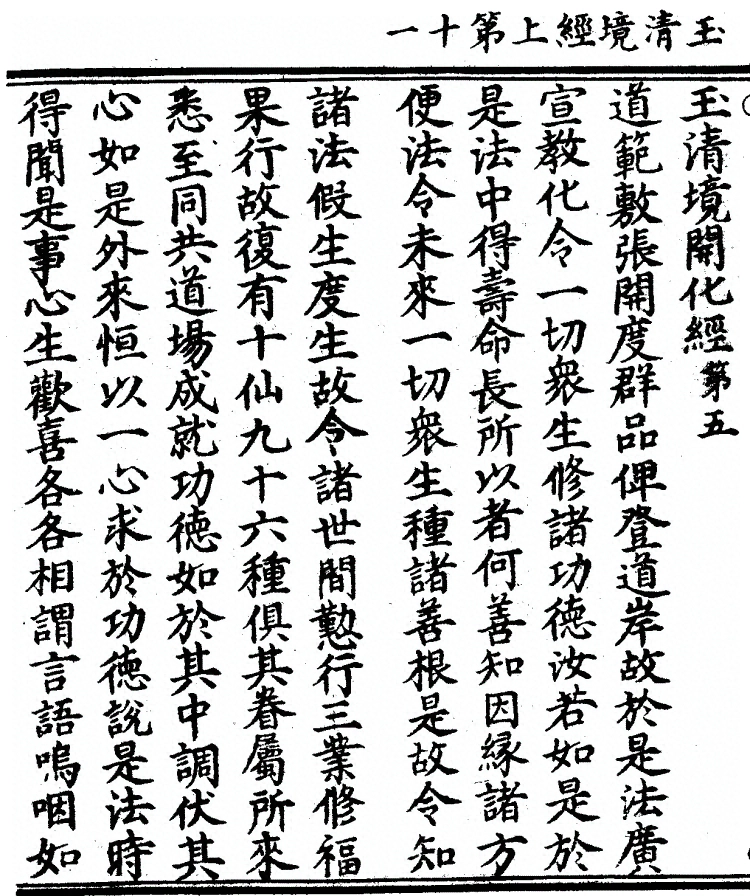 玉清境經上第十一
玉清境開化經第五
道範敷張開度群品俾登道岸故於是法廣
宣教化令一切衆生修諸功德汝若如是於
是法中得壽命長所以者何善知因緣諸方
便法令未來一切衆生種諸善根是故令知
諸法假生度生故令諸世間懃行三業修福
果行故復有十仙九十六種俱其眷屬所來
悉至同共道場成就功德如於其中調伏其
心如是外來恒以一心求於功德說是法時
得聞是事心生歡喜各各相謂言語嗚咽如